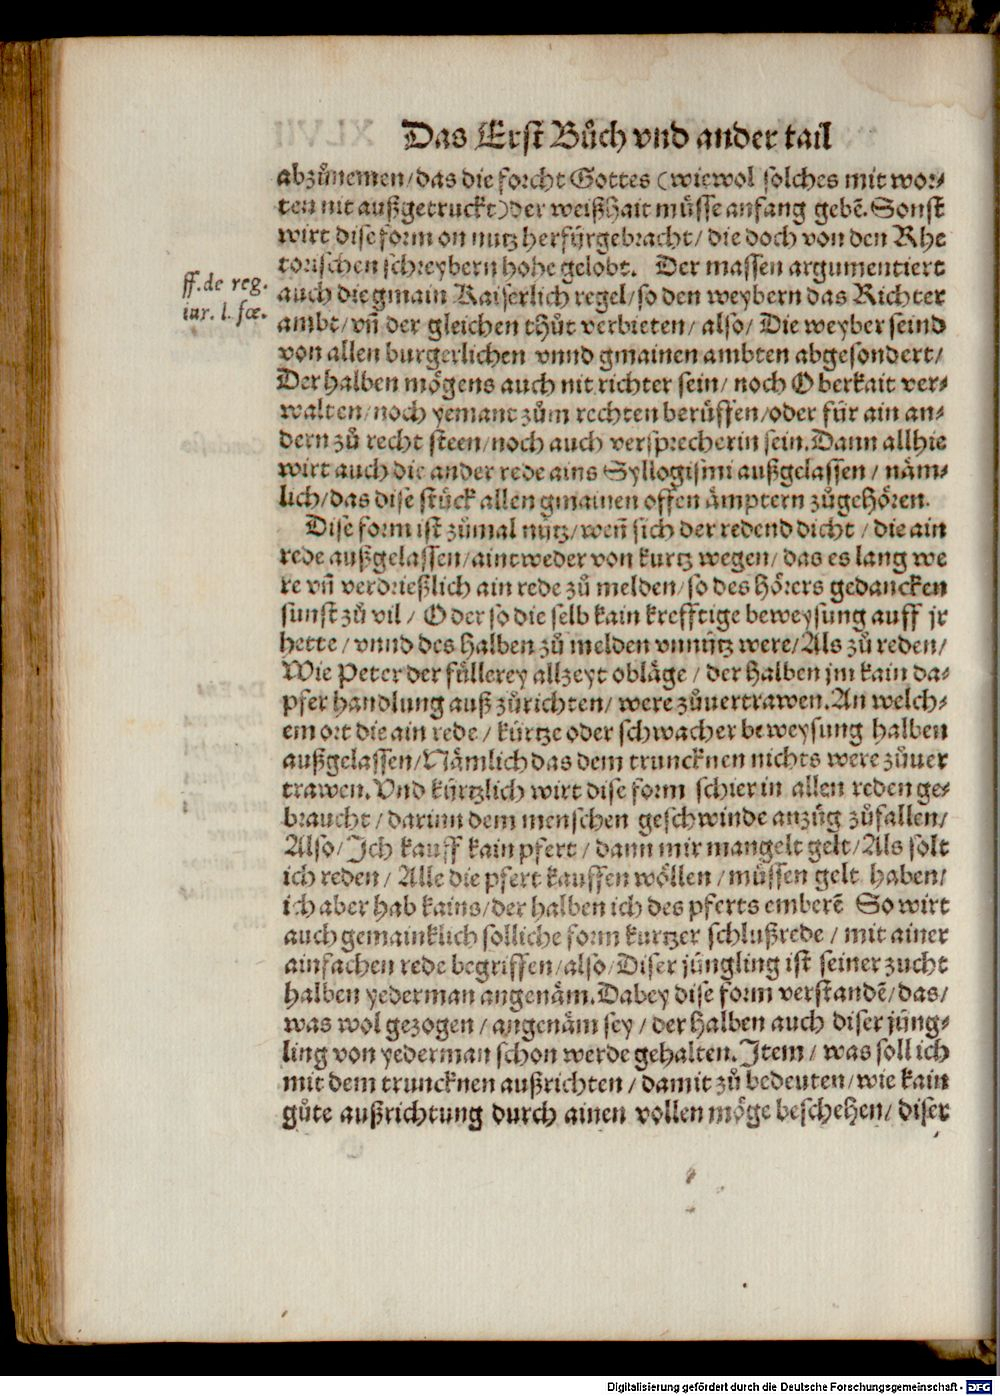 Das Erst Bůch vnd ander tail
abzůnemen/das die forcht Gottes (wiewol solches mit wor⸗
ten nit außgetruckt) der weißhait müsse anfang gebē. Sonst
wirt dise form on nutz herfürgebracht/ die doch von den Rhe
torischen schreybern hohe gelobt. Der massen argumentiert
ff. de reg.
iur. l. fœ.
auch die gmain Kaiserlich regel/so den weybern das Richter
ambt/vñ der gleichen thůt verbieten/ also/ Die weyber seind
von allen burgerlichen vnnd gmainen ambten abgesondert/
Derhalben mögens auch nit richter sein/ noch Oberkait ver⸗
walten/noch yemant zům rechten berüffen/oder für ain an⸗
dern zů recht steen/noch auch versprecherin sein. Dann allhie
wirt auch die ander rede ains Syllogismi außgelassen/ näm⸗
lich/das dise stück allen gmainen offen ämptern zůgehören.
Dise form ist zůmal nütz/weñ sich der redend dicht/ die ain
rede außgelassen/aintweder von kurtz wegen/ das es lang we
re vñ verdrießlich ain rede zů melden/so des hörers gedancken
sunst zů vil/ Oder so die selb kain krefftige beweysung auff jr
hette/vnnd des halben zů melden vnnütz were/Als zů reden/
Wie Peter der füllerey allzeyt obläge/ der halben jm kain da⸗
pfer handlung auß zůrichten/ were zůuertrawen. An welch⸗
em ort die ain rede/ kürtze oder schwacher beweysung halben
außgelassen/Nämlich das dem truncknen nichts were zůuer
trawen. Vnd kürtzlich wirt dise form schier in allen reden ge⸗
braucht/darinn dem menschen geschwinde anzüg zůfallen/
Also/Ich kauff kain pfert/ dann mir mangelt gelt/Als solt
ich reden/ Alle die pfert kauffen wöllen/müssen gelt haben/
ich aber hab kains/der halben ich des pferts emberē So wirt
auch gemainklich solliche form kurtzer schlußrede/ mit ainer
ainfachen rede begriffen/also/Diser jüngling ist seiner zucht
halben yederman angenäm. Dabey dise form verstandē/das/
was wol gezogen/angenäm sey/der halben auch diser jüng⸗
ling von yederman schon werde gehalten. Item/ was soll ich
mit dem truncknen außrichten/damit zů bedeuten/wie kain
gůte außrichtung durch ainen vollen möge beschehen/ diser
Digitalisierung gefördert durch die Deutsche Forschungsgemeinschaft - DFG